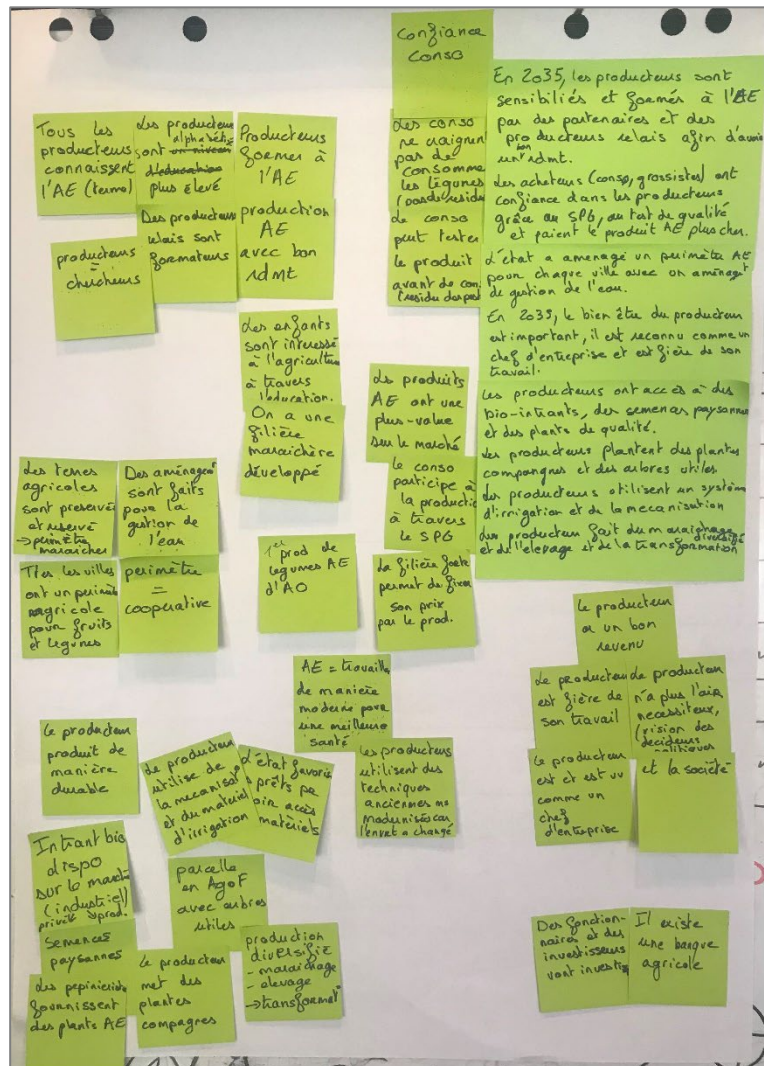 Confiance
conso
En 2035, les producteurs sont
sensibiliés et formés à l'AE
par des partenaires et des
producteurs relais afin d'avoir
un bon rdmt.
Les acheteurs (conso, grossistes) ont
confiance dans les producteurs
grâce au SPG, au test de qualité
et paient le produit AE plus cher.
L'état a amenagé un perimètre AE
pour chaque ville avec un aménagt
de gestion de l'eau.
En 2035, le bien être du producteur
est important, il est reconnu comme un
chef d'entreprise et est fière de son
travail.
Les producteurs ont accès à des
bio-intrants, des semences paysannes
et des plants de qualité.
Les producteurs plantent des plantes
compagnes et des arbres utiles
Les producteurs utilisent un système
d'irrigation et de la mecanisation
Les producteur fait du maraichage diversifié
et de l'elevage et de la transformation
Tous les
producteurs
connaissent
l'AE (terme)
Les producteurs
sont alphabétisé
un niveau
d'éducation
plus élevé
Producteurs
former à
l'AE
Les conso
ne craignent
pas de
consommer
les légumes
(pas de résidu
Le conso
peut tester
le produit
avant de con
(residu de
producteurs
=
chercheurs
Des producteurs
relais sont
formateurs
production
AE
avec bon
rdmt
Les enfants
sont interessé
à l'agriculture
à travers
l'education.
On a une
filière
maraichère
développé
Les produits
AE ont une
plus-value
sur le marché
Le conso
participe à
la production
à travers
le SPG
Les terres
agricoles
sont preservé
et reservé
→ perimètre
maraicher
Des aménagemt
sont faits
pour la
gestion de
l'eau
Ttes les villes
ont un perimè
agricole
pour fruits
et legumes
perimètre
=
cooperative
1er prod de
legumes AE
d'AO
La filière forte
permet de fixer
son prix
par le prod.
AE = travaille
de manière
moderne pour
une meilleure
santé
Les producteurs
utilisent des
techniques
anciennes
modernisés car
l'envt a changé
Le producteur
a un bon
revenu
Le producteur
est fière de
son travail
Le producteur
n'a plus l'air
necessiteux,
(vision des
decideurs
politiques
Le producteur
est et est vu
comme un
chef
d'entreprise
et la société
Le producteur
produit de
manière
durable
Le producteur
utilise de
la mecanisat°
et du materiel
d'irrigation
L'état favorise
prêts pr
avoir accès
matèriels
Intrant bio
dispo
sur le marché
(industriel)
privé → prod.
parcelle
en AgoF
avec arbres
utiles
Semences
paysannes
Les pepinieristes
fournissent
des plants AE
Le producteur
met des
plantes
compagnes
production
diversifié
- maraichage
- elevage
→ transformat°
Des fonction-
naires et des
investisseurs
vont investir
Il existe
une banque
agricole